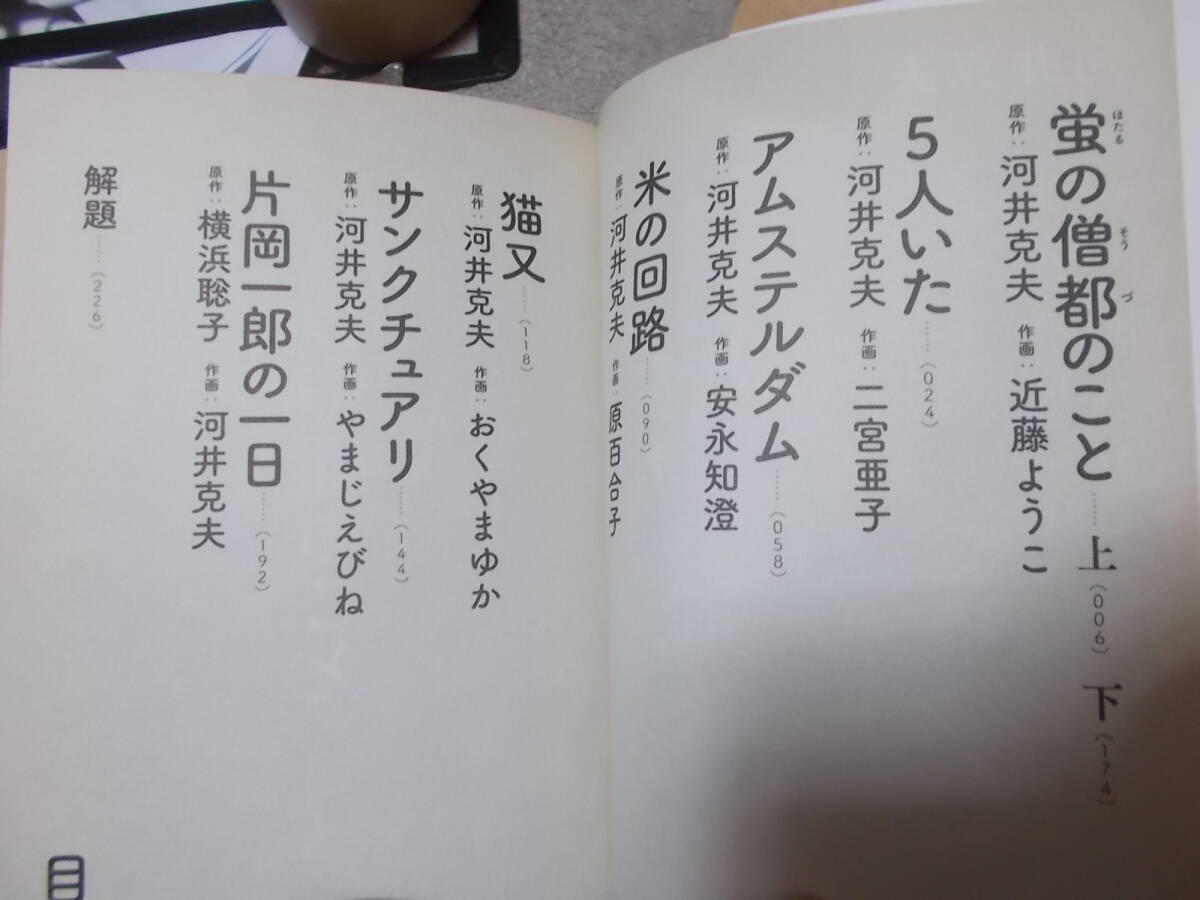 蛍の僧都のこと……上(006) 下(174)
ほたる
そう
づ
原作：河井克夫 作画：近藤ようこ
5人いた……(024)
原作：河井克夫 作画：二宮亜子
アムステルダム……(058)
原作：河井克夫 作画：安永知澄
米の回路……(090)
原作：河井克夫 作画：原百合子
猫又……(118)
原作：河井克夫 作画：おくやまゆか
サンクチュアリ……(144)
原作：河井克夫 作画：やまじえびね
片岡一郎の一日……(192)
原作：横浜聡子 作画：河井克夫
解題……(226)
目